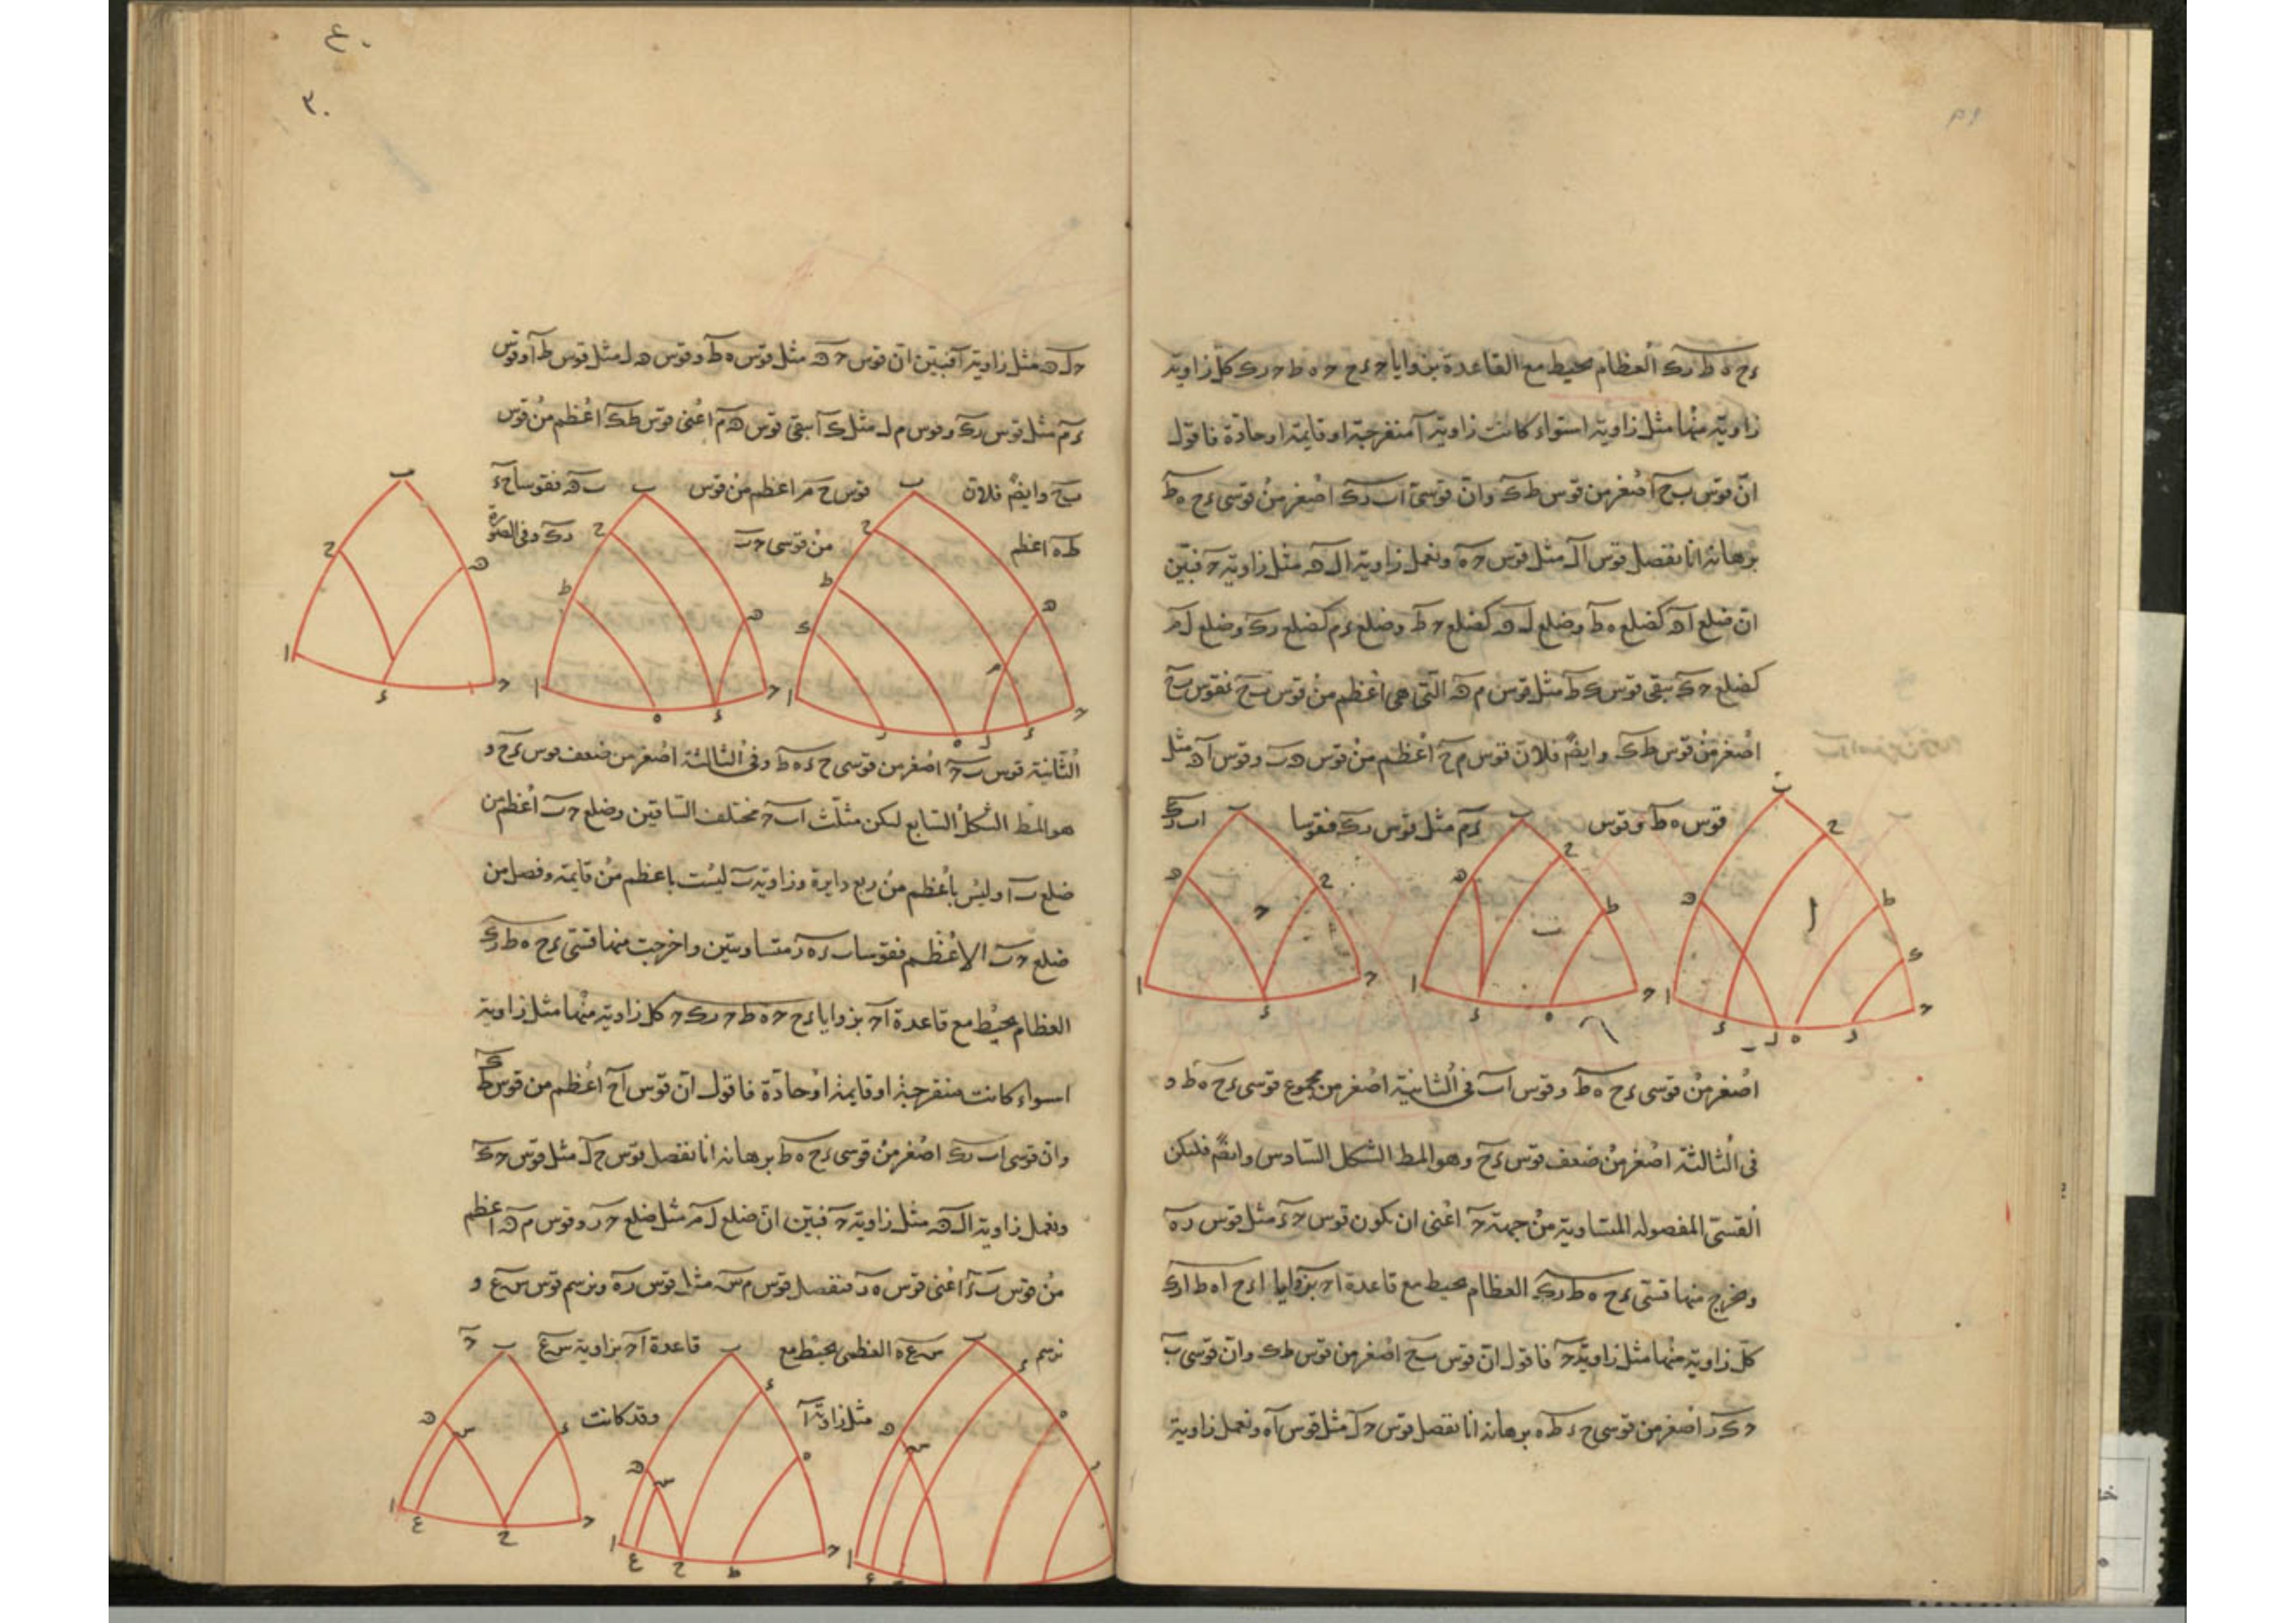 ءح ه ط رك العظام يحيط مع القاعدة بزوايا حءح حه ط حرك كل زاوية
زاوية منها مثل زاوية ا سواء كانت زاوية ا منفرجة او قايمة او حادة فاقول
ان قوس بح اصغر من قوس طك وان قوسى اب رك اصغر من قوسى ءح ه ط
برهانه انا نفصل قوس ال مثل قوس حه ونعمل زاوية ال ه مثل زاوية ح فبين
ان ضلع اه كضلع ه ط وضلع ل ه كضلع ح ط وضلع ءم كضلع رك وضلع ل م
كضلع حك يبقى قوس ك ط مثل قوس م ه التى هى اعظم من قوس بح فقوس بح
اصغر من قوس ط ك وايضً فلان قوس م ح اعظم من قوس ه ب وقوس اه مثل
قوس ه ط وقوس ءم مثل قوس رك فقوسا اب رك
اصغر من قوسى ءح ه ط وقوس اب فى الثانية اصغر من مجموع قوسى ءح ه ط و
فى الثالثة اصغر من ضعف قوس ءح وهو المط الشكل السادس وايضً فلتكن
القسى المفصوله المتساوية من جهة ح اعنى ان يكون قوس حء مثل قوس ره
ونخرج منها قسى ءح ه ط رك العظام يحيط مع قاعدة اح بزوايا اءح اه ط ارك
كل زاوية منها مثل زاوية ح فاقول ان قوس بح اصغر من قوس طك وان قوسى ب
ح ك ر اصغر من قوسى ح ء ط ه برهانه انا نفصل قوس حل مثل قوس اه ونعمل زاوية
حل ه مثل زاوية ا فبين ان قوس حه مثل قوس ه ط وقوس ه ل مثل قوس ط ا وقوس
ءم مثل قوس رك وقوس م ل مثل ك ا يبقى قوس ه م اعنى قوس طك اعظم من قوس
بح وايضً فلان قوس ح م اعظم من قوس ب ه فقوسا حء
ط ه اعظم من قوسى ح ب رك وفى الصورة
الثانية قوس ب ح اصغر من قوسى ح ء ه ط وفى الثالثة اصغر من ضعف قوس ءح و
هو المط الشكل السابع ليكن مثلث اب ح مختلف الساقين وضلع ح ب اعظم من
ضلع ب ا وليس باعظم من ربع دايرة وزاوية ب ليست باعظم من قايمة وفصل من
ضلع ح ب الاعظم فقوسا ب ء ه ر متساويتين واخرجت منها قسى ءح ه ط رك
العظام يحيط مع قاعدة اح بزوايا ءح ح ه ط ح رك ح كل زاوية منها مثل زاوية
ا سواء كانت منفرجة او قايمة او حادة فاقول ان قوس اح اعظم من قوس طك
وان قوسى اب رك اصغر من قوسى ءح ه ط برهانه انا نفصل قوس حل مثل قوس حك
ونعمل زاوية ال ه مثل زاوية ح فبين ان ضلع ل م مثل ضلع ح ر وقوس م ه اعظم
من قوس بء اعنى قوس ه ر فنفصل قوس م س مثل قوس ره ونرسم قوس س ع و
نرسم س ع ه العظمى يحيط مع قاعدة اح بزاوية س ع ح
مثل زاوية ا وقد كانت